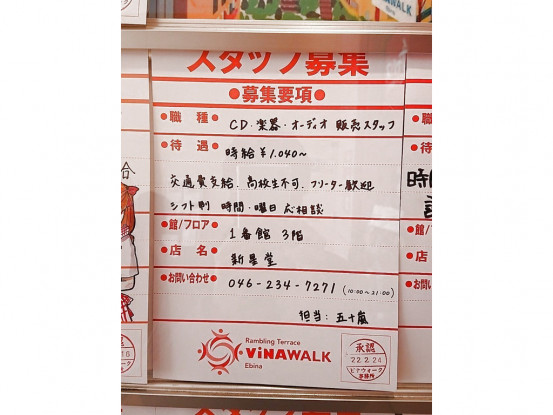 WALK
Ebina
スタッフ募集
●募集要項●
●職種● CD・楽器・オーディオ 販売スタッフ
●待遇● 時給¥1.040〜
交通費支給、高校生不可、フリーター歓迎
シフト制 時間・曜日 応相談
●館/フロア● 1番館 3階
●店名● 新星堂
●お問い合わせ● 046-234-7271 (10:00〜21:00)
担当:五十嵐
Rambling Terrace
ViNAWALK
Ebina
承認
22.2.24
ビナウォーク
事務所